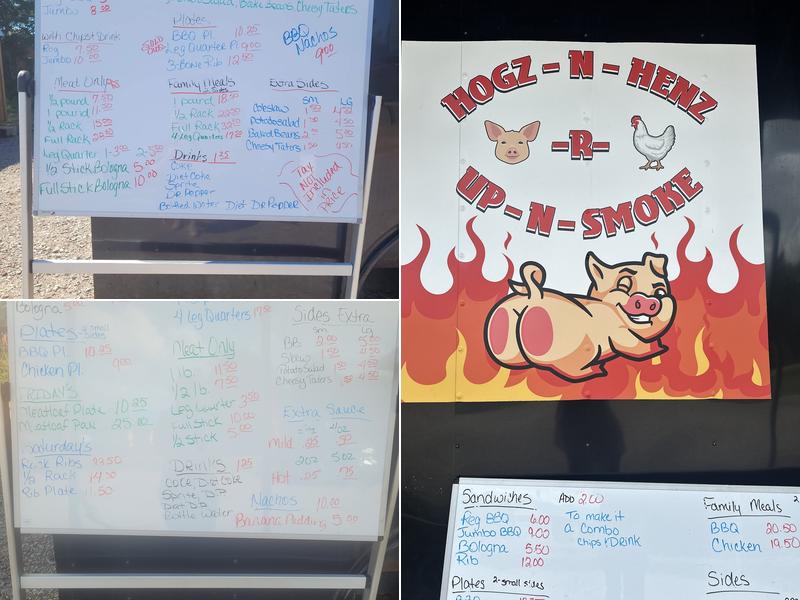 Jumbo 8.50
with Chips & Drink
Reg 7.50
Jumbo 10.00
SOLD OUT
Plates
BBQ Pl. 10.25
Leg Quarter Pl. 9.00
3-Bone Rib 12.50
BBQ Nachos 9.00
Meat Only
1/2 pound 7.50
1 pound 11.50
1/2 Rack 15.00
Full Rack
Leg Quarter 1-3.00
1/2 Stick Bologna 5.00
Full Stick Bologna 10.00
Family Meals
1 pound 18.50
1/2 Rack
Full Rack
4 Leg Quarters
Drinks 1.25
Coke
Diet Coke
Sprite
Dr Pepper
Bottled Water Diet Dr Pepper
Extra Sides
SM LG
Coleslaw
Potato Salad
Baked Beans
Cheesy Taters
Tax
Not
Included
in
Price
HOGZ-N-HENZ
-R-
UP-N-SMOKE
Bologna
Plates 2-small sides
BBQ Pl. 10.25
Chicken Pl. 9.00
FRIDAY'S
Meatloaf Plate 10.25
Meatloaf Pan 25.00
Saturday's
Rack Ribs
1/2 Rack
Rib Plate 11.50
4 Leg Quarters
Meat Only
1 lb. 11.50
1/2 lb. 7.50
Leg Quarter 3.00
Full Stick 10.00
1/2 Stick 5.00
Drinks 1.25
Coke, Diet Coke
Sprite, DP
Diet DP
Bottle Water
Sides Extra
SM LG
BB 2.00
Slaw
Potato Salad
Cheesy Taters
Extra Sauce
Mild .25
2oz 5oz
Hot .25 .75
Nachos 10.00
Banana Pudding 5.00
Sandwiches
Reg BBQ 6.00
Jumbo BBQ 9.00
Bologna 5.50
Rib 12.00
ADD 2.00
To make it
a Combo
chips & Drink
Family Meals
BBQ 20.50
Chicken 19.50
Plates 2-small sides
Sides